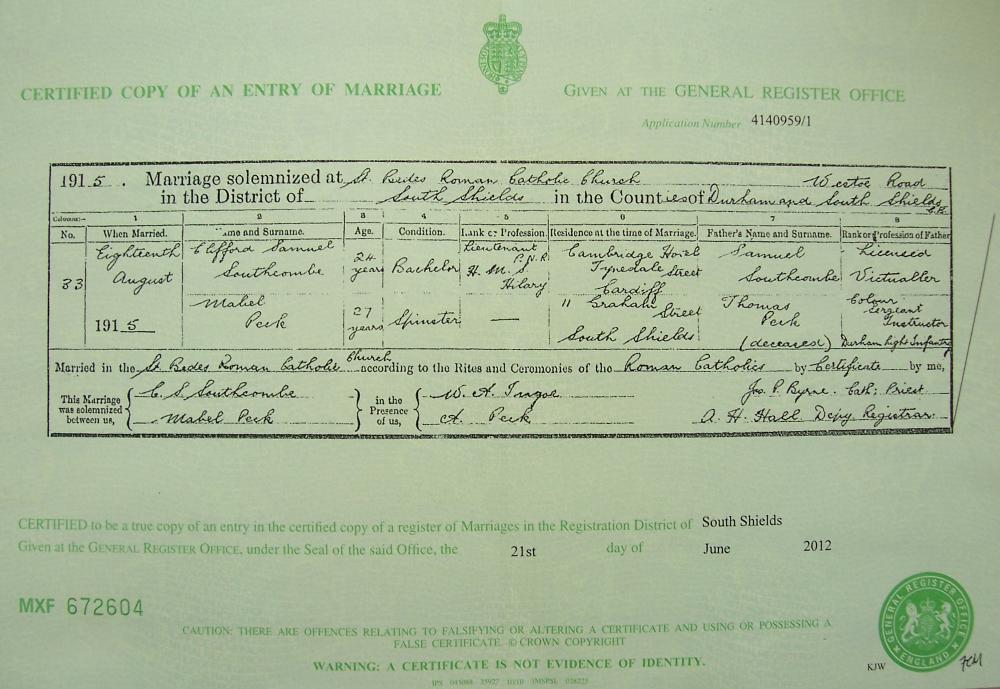 CERTIFIED COPY OF AN ENTRY OF MARRIAGE
GIVEN AT THE GENERAL REGISTER OFFICE
Application Number 4140959/1
1915. Marriage solemnized at St. Brides Roman Catholic Church Westoe Road
in the District of South Shields in the Counties of Durham and South Shields C.B.
Columns:— 1 2 3 4 5 6 7 8
No. When Married. Name and Surname. Age. Condition. Rank or Profession. Residence at the time of Marriage. Father's Name and Surname. Rank or Profession of Father
33
Eighteenth
August
1915
Clifford Samuel
Southcombe
24
years
Bachelor
Lieutenant
R.N.R.
H.M.S
Hilary
Cambridge Hotel
Tynedale Street
Cardiff
Samuel
Southcombe
Licensed
Victualler
Mabel
Peck
27
years
Spinster
—
11 Graham Street
South Shields
Thomas
Peck
(deceased)
Colour
Sergeant
Instructor
Durham Light Infantry
Married in the St. Brides Roman Catholic Church according to the Rites and Ceremonies of the Roman Catholics by Certificate by me,
This Marriage
was solemnized
between us,
C. S. Southcombe
Mabel Peck
in the
Presence
of us,
W. A.
A. Peck
Jas. P. Byrne. Cath: Priest
A. H. Hall Depy Registrar.
CERTIFIED to be a true copy of an entry in the certified copy of a register of Marriages in the Registration District of South Shields
Given at the GENERAL REGISTER OFFICE, under the Seal of the said Office, the 21st day of June 2012
MXF 672604
CAUTION: THERE ARE OFFENCES RELATING TO FALSIFYING OR ALTERING A CERTIFICATE AND USING OR POSSESSING A
FALSE CERTIFICATE. © CROWN COPYRIGHT
WARNING: A CERTIFICATE IS NOT EVIDENCE OF IDENTITY.
GENERAL REGISTER OFFICE
ENGLAND
KJW